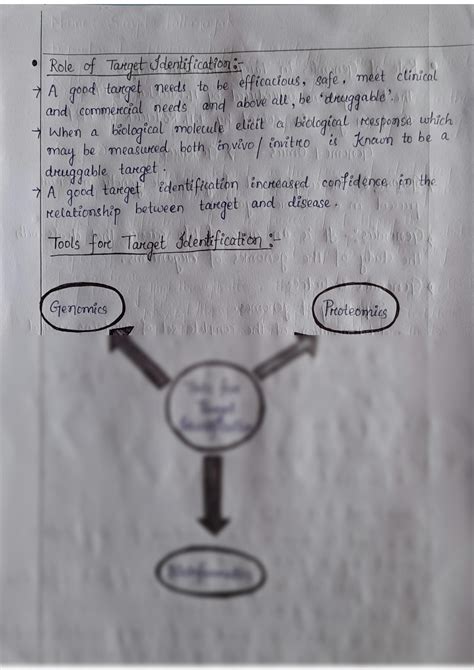 • Role of Target Identification :-
→ A good target needs to be efficacious, safe, meet clinical
and commercial needs and above all, be 'druggable'.
→ When a biological molecule elicit a biological response which
may be measured both invivo/invitro is known to be a
druggable target.
→ A good target identification increased confidence in the
relationship between target and disease.
Tools for Target Identification :-
Genomics
Proteomics